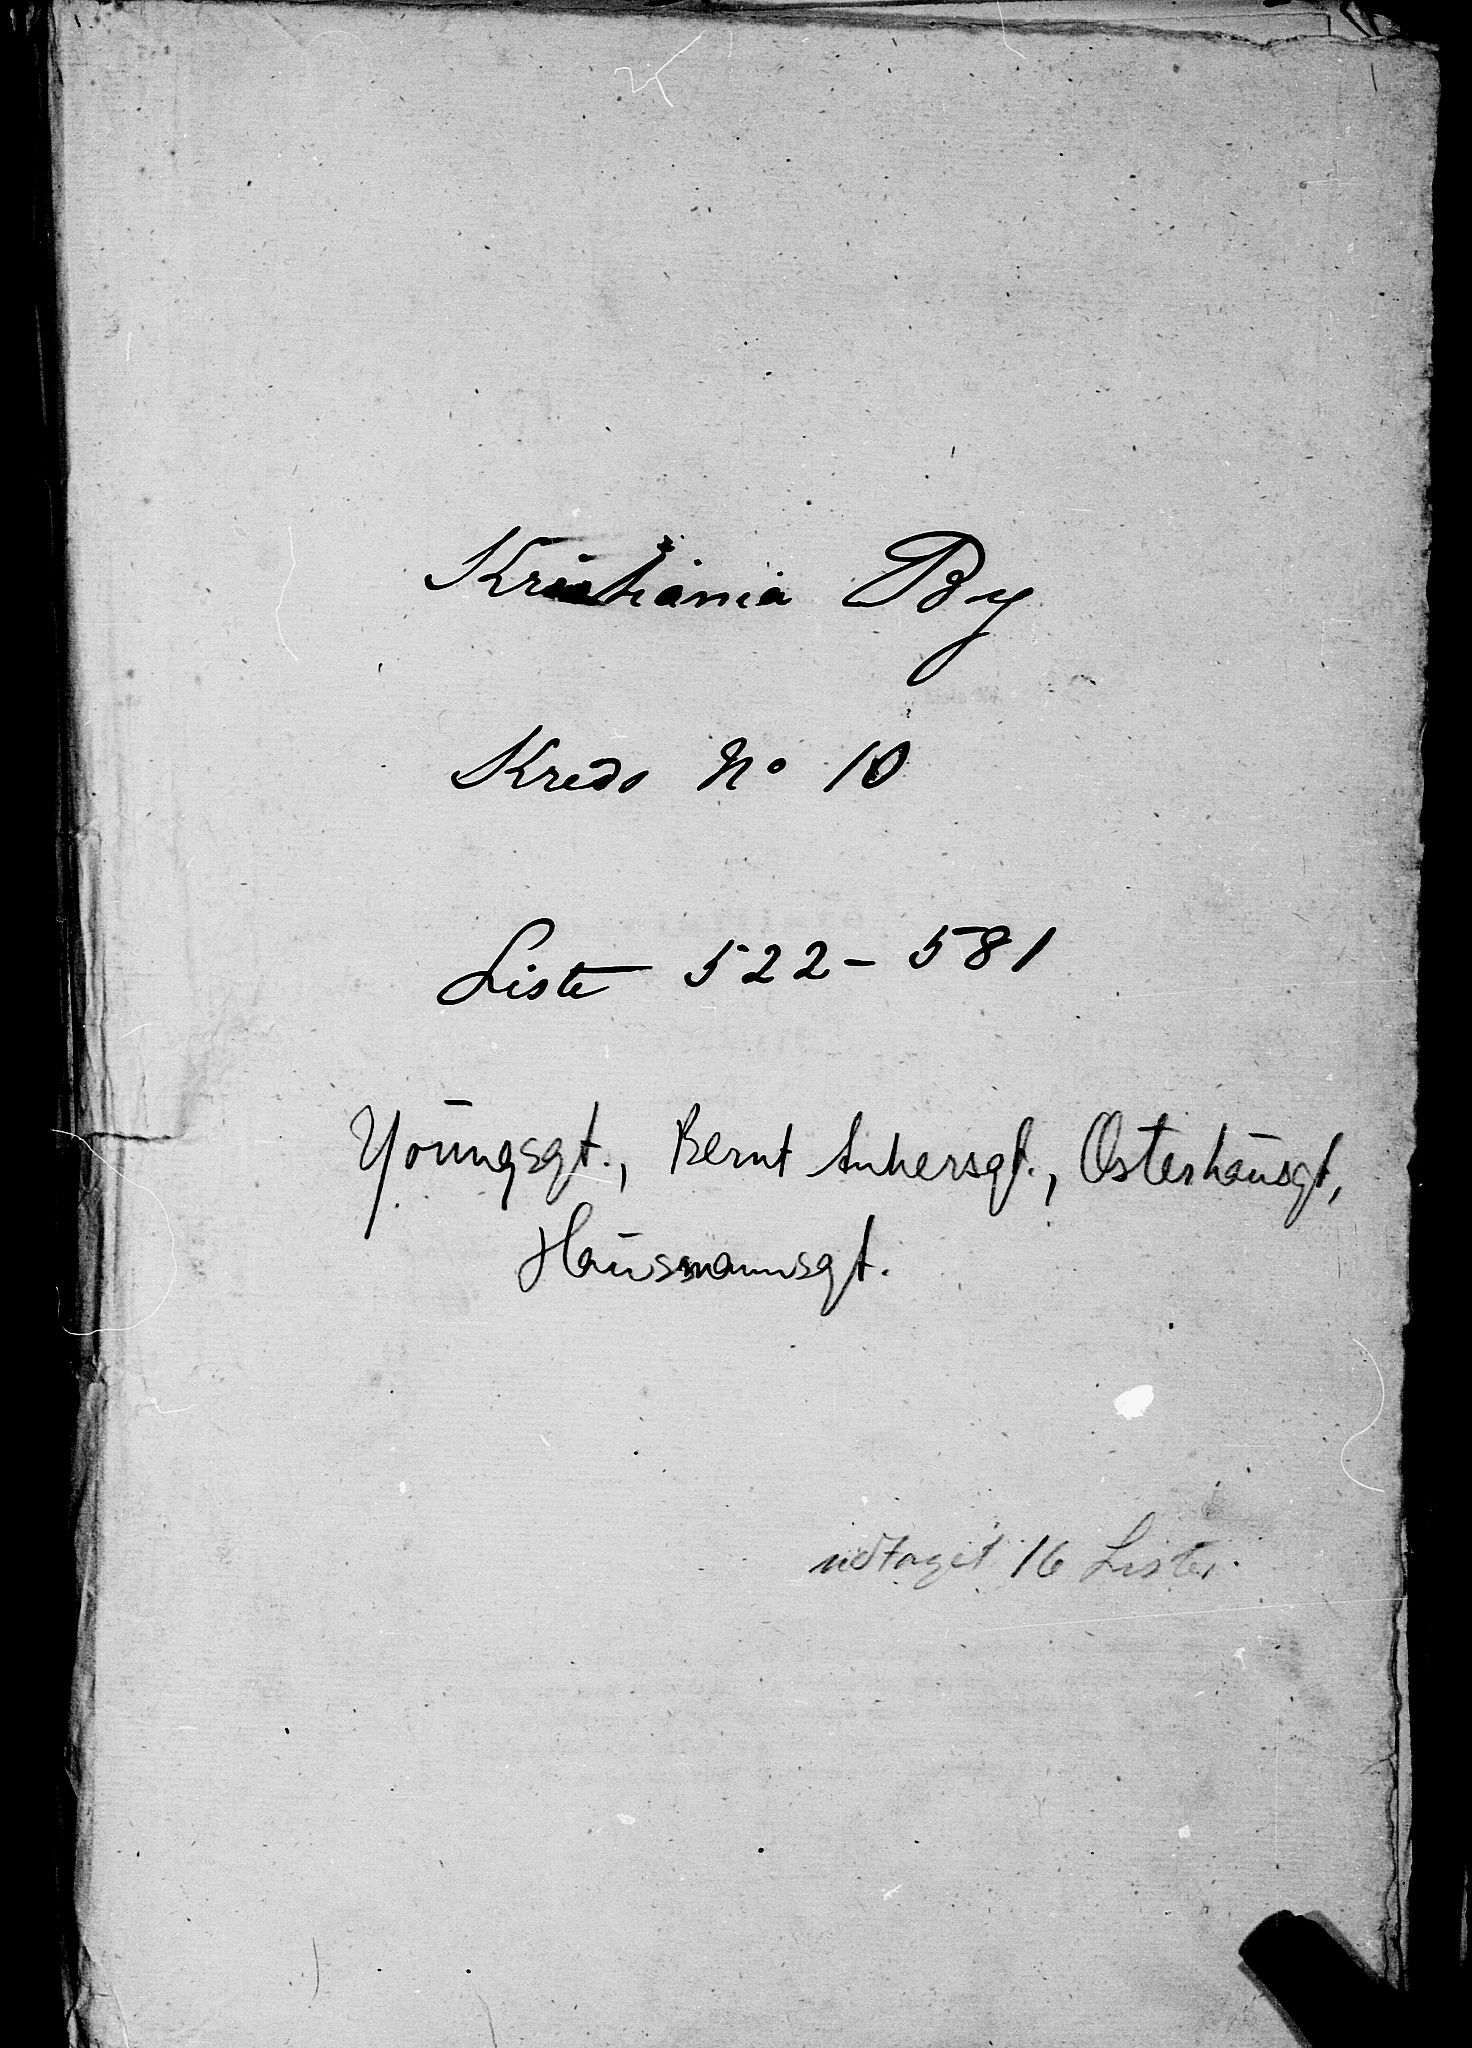 Kristiania By
Kreds No 10
Liste 522 - 581
Youngsgt., Bernt Ankersgt., Osterhausgt,
Hausmannsgt.
udtaget 16 Lister.